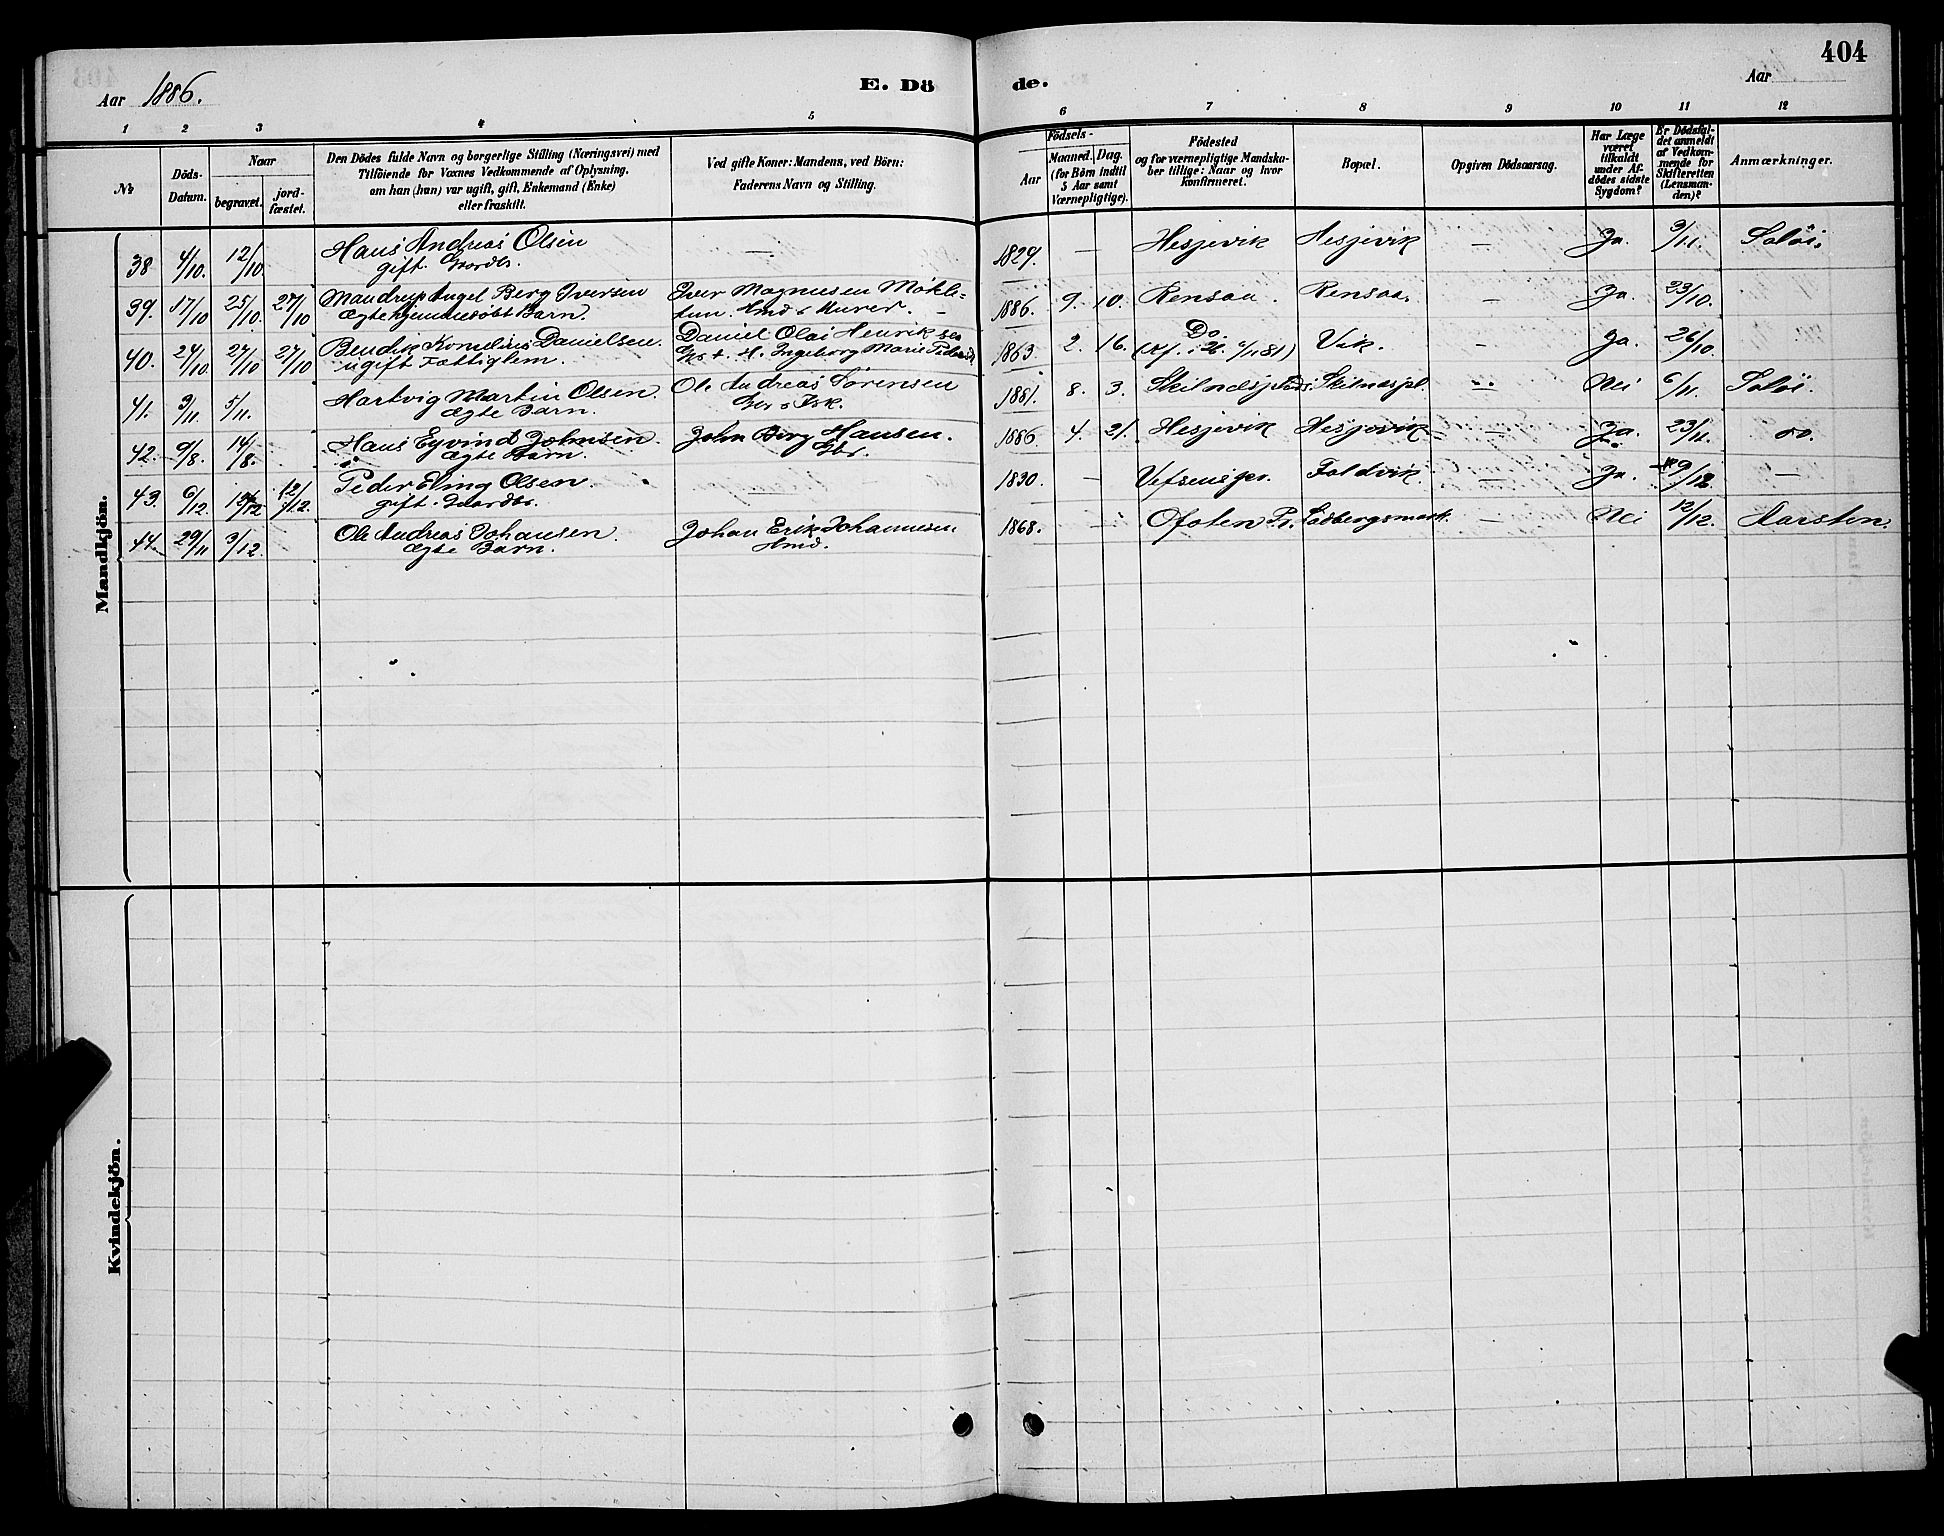 404
Aar 1886.
E. Dö
de.
Aar
1 2 3 4 5 6 7 8 9 10 11 12
№
Döds-
Datum.
Naar
begravet.
jord-
fæstet.
Den Dödes fulde Navn og borgerlige Stilling (Næringsvei) med
Tilföiende for Voxnes Vedkommende af Oplysning,
om han (hun) var ugift, gift, Enkemand (Enke)
eller fraskilt.
Ved gifte Koner: Mandens, ved Börn:
Faderens Navn og Stilling.
Födsels-
Aar
Maaned. Dag.
(for Börn indtil
5 Aar samt
Værnepligtige).
Födested
og for værnepligtige Mandska-
ber tillige: Naar og hvor
konfirmeret.
Bopæl.
Opgiven Dödsaarsag.
Har Læge
været
tilkaldt
under Af-
dödes sidste
Sygdom?
Er Dödsfal-
det anmeldt
af Vedkom-
mende for
Skifteretten
(Lensman-
den)?
Anmærkninger.
Mandkjön.
38 4/10. 12/10 Hans Andreas Olsen — 1829. — Hesjevik Hesjevik — Ja. 3/11. Soløi.
gift. Gaardbr.
39. 17/10 25/10. 27/10 Mandrup Angel Berg Iversen Iver Magnussen Møkle- 1886. 9. 10. Rensaa. Rensaa. — Ja. 23/10.
Ægte hjemmedøbt Barn. tun. Hmd & Murer. —
40. 24/10. 27/10 27/10 Bendik Kornelius Danielsen. Daniel Olai Henriksen 1863. 2. 16. Do Vik. — Ja. 26/10.
ugift Fattiglem. H. Ingeborg Marie
41. 3/11. 5/11. Hartvig Martin Olsen. Ole Andreas Sørensen 1881. 8. 3. Nei 6/11. Soløi.
Ægte Barn. Gbr & Fsk.
42. 9/8. 14/8. Hans Eyvind Johnsen. John Berg Hansen. 1886. 4. 21. Hesjevik Hesjevik — Ja. 23/11. do.
Ægte Barn. Gbr.
43. 6/12. 12/12. Peder Elling Olsen. — 1830. — Vefsens Foldvik. — Ja. 9/12. —
gift. Gaardbr.
44. 29/11 3/12. Ole Andreas Johansen. Johan Erik Johannesen 1868. — Ofoten Pr. — Nei 12/12. Aarsten.
Ægte Barn. Hmd.
Kvindekjön.